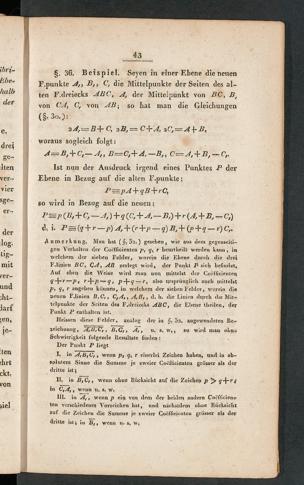 43
§. 36. Beispiel. Seyen in einer Ebene die neuen
F.punkte A,, B,, C, die Mittelpunkte der Seiten des al-
ten F.dreiecks ABC, A, der Mittelpunkt von BC, B,
von CA, C, von AB; so hat man die Gleichungen
(§. 30.):
2A,=B+C, 2B,=C+A, 2C,=A+B,
woraus sogleich folgt:
A=B,+C,−A,, B=C,+A,−B,, C=A,+B,−C,.
Ist nun der Ausdruck irgend eines Punktes P der
Ebene in Bezug auf die alten F.punkte:
P≡pA+qB+rC,
so wird in Bezug auf die neuen:
P≡p(B,+C,−A,)+q(C,+A,−B,)+r(A,+B,−C,)
d. i. P≡(q+r−p)A,+(r+p−q)B,+(p+q−r)C,.
Anmerkung. Man hat (§. 30.) gesehen, wie aus dem gegenseiti-
gen Verhalten der Coëfficienten p, q, r beurtheilt werden kann, in
welchem der sieben Felder, worein die Ebene durch die drei
F.linien BC, CA, AB zerlegt wird, der Punkt P sich befindet.
Auf eben die Weise wird man nun mittelst der Coëfficienten
q+r−p, r+p−q, p+q−r, also ursprünglich auch mittelst
p, q, r angeben können, in welchem der sieben Felder, worein die
neuen F.linien B,C,, C,A,, A,B,, d. h. die Linien durch die Mit-
telpunkte der Seiten des F.dreiecks ABC, die Ebene theilen, der
Punkt P enthalten ist.
Heissen diese Felder, analog der in §. 30. angewendeten Be-
zeichnung, A,B,C,, B,C,, A,, u. s. w., so wird man ohne
Schwierigkeit folgende Resultate finden:
Der Punkt P liegt
I. in A,B,C,, wenn p, q, r einerlei Zeichen haben, und in ab-
solutem Sinne die Summe je zweier Coëfficienten grösser als der
dritte ist;
II. in B,C,, wenn ohne Rücksicht auf die Zeichen p > q+r;
in C,A,, wenn u. s. w.
III. in A,, wenn p ein von dem der beiden andern Coëfficien-
ten verschiedenes Vorzeichen hat, und nächstdem ohne Rücksicht
auf die Zeichen die Summe je zweier Coëfficienten grösser als der
dritte ist; in B,, wenn u. s. w.